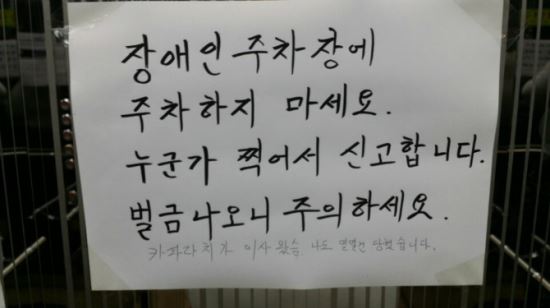 장애인 주차장에
주차하지 마세요.
누군가 찍어서 신고합니다.
벌금나오니 주의하세요.
카파라치가 이사 왔음. 나도 몇일전 당했습니다.